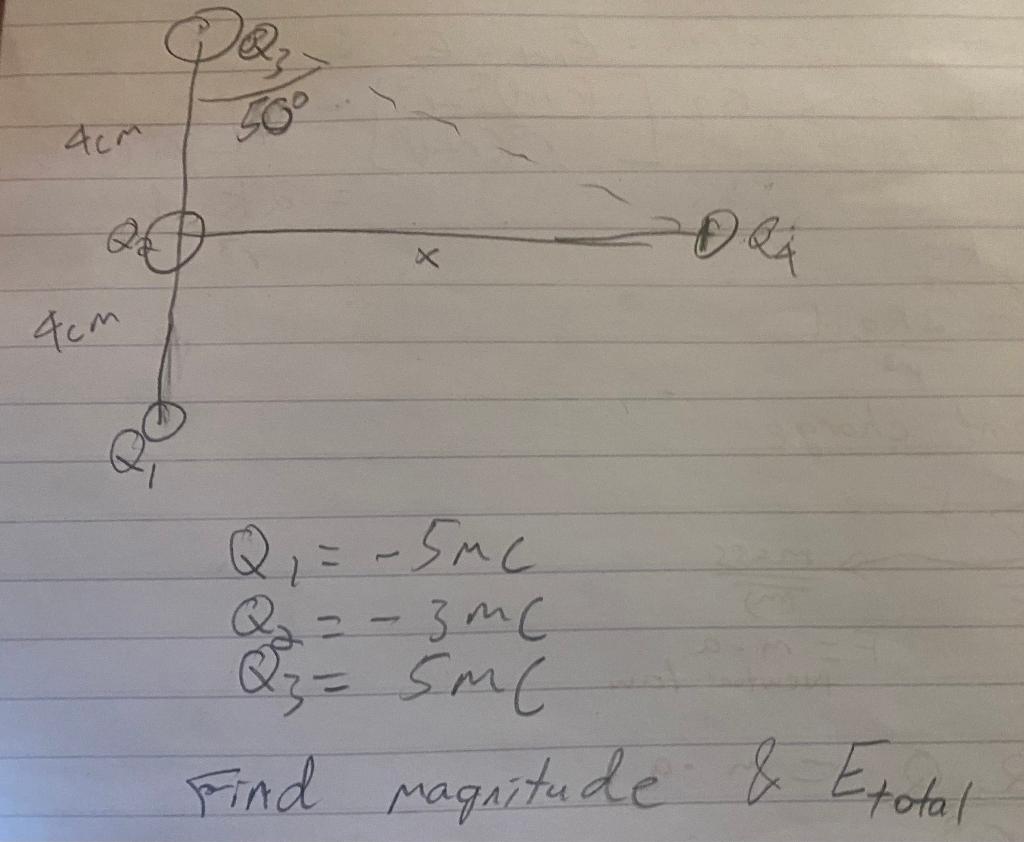 Q3
50°
4cm
Q2
x
Q4
4cm
Q1
Q1 = -5mC
Q2 = -3mC
Q3 = 5mC
Find magnitude & Etotal